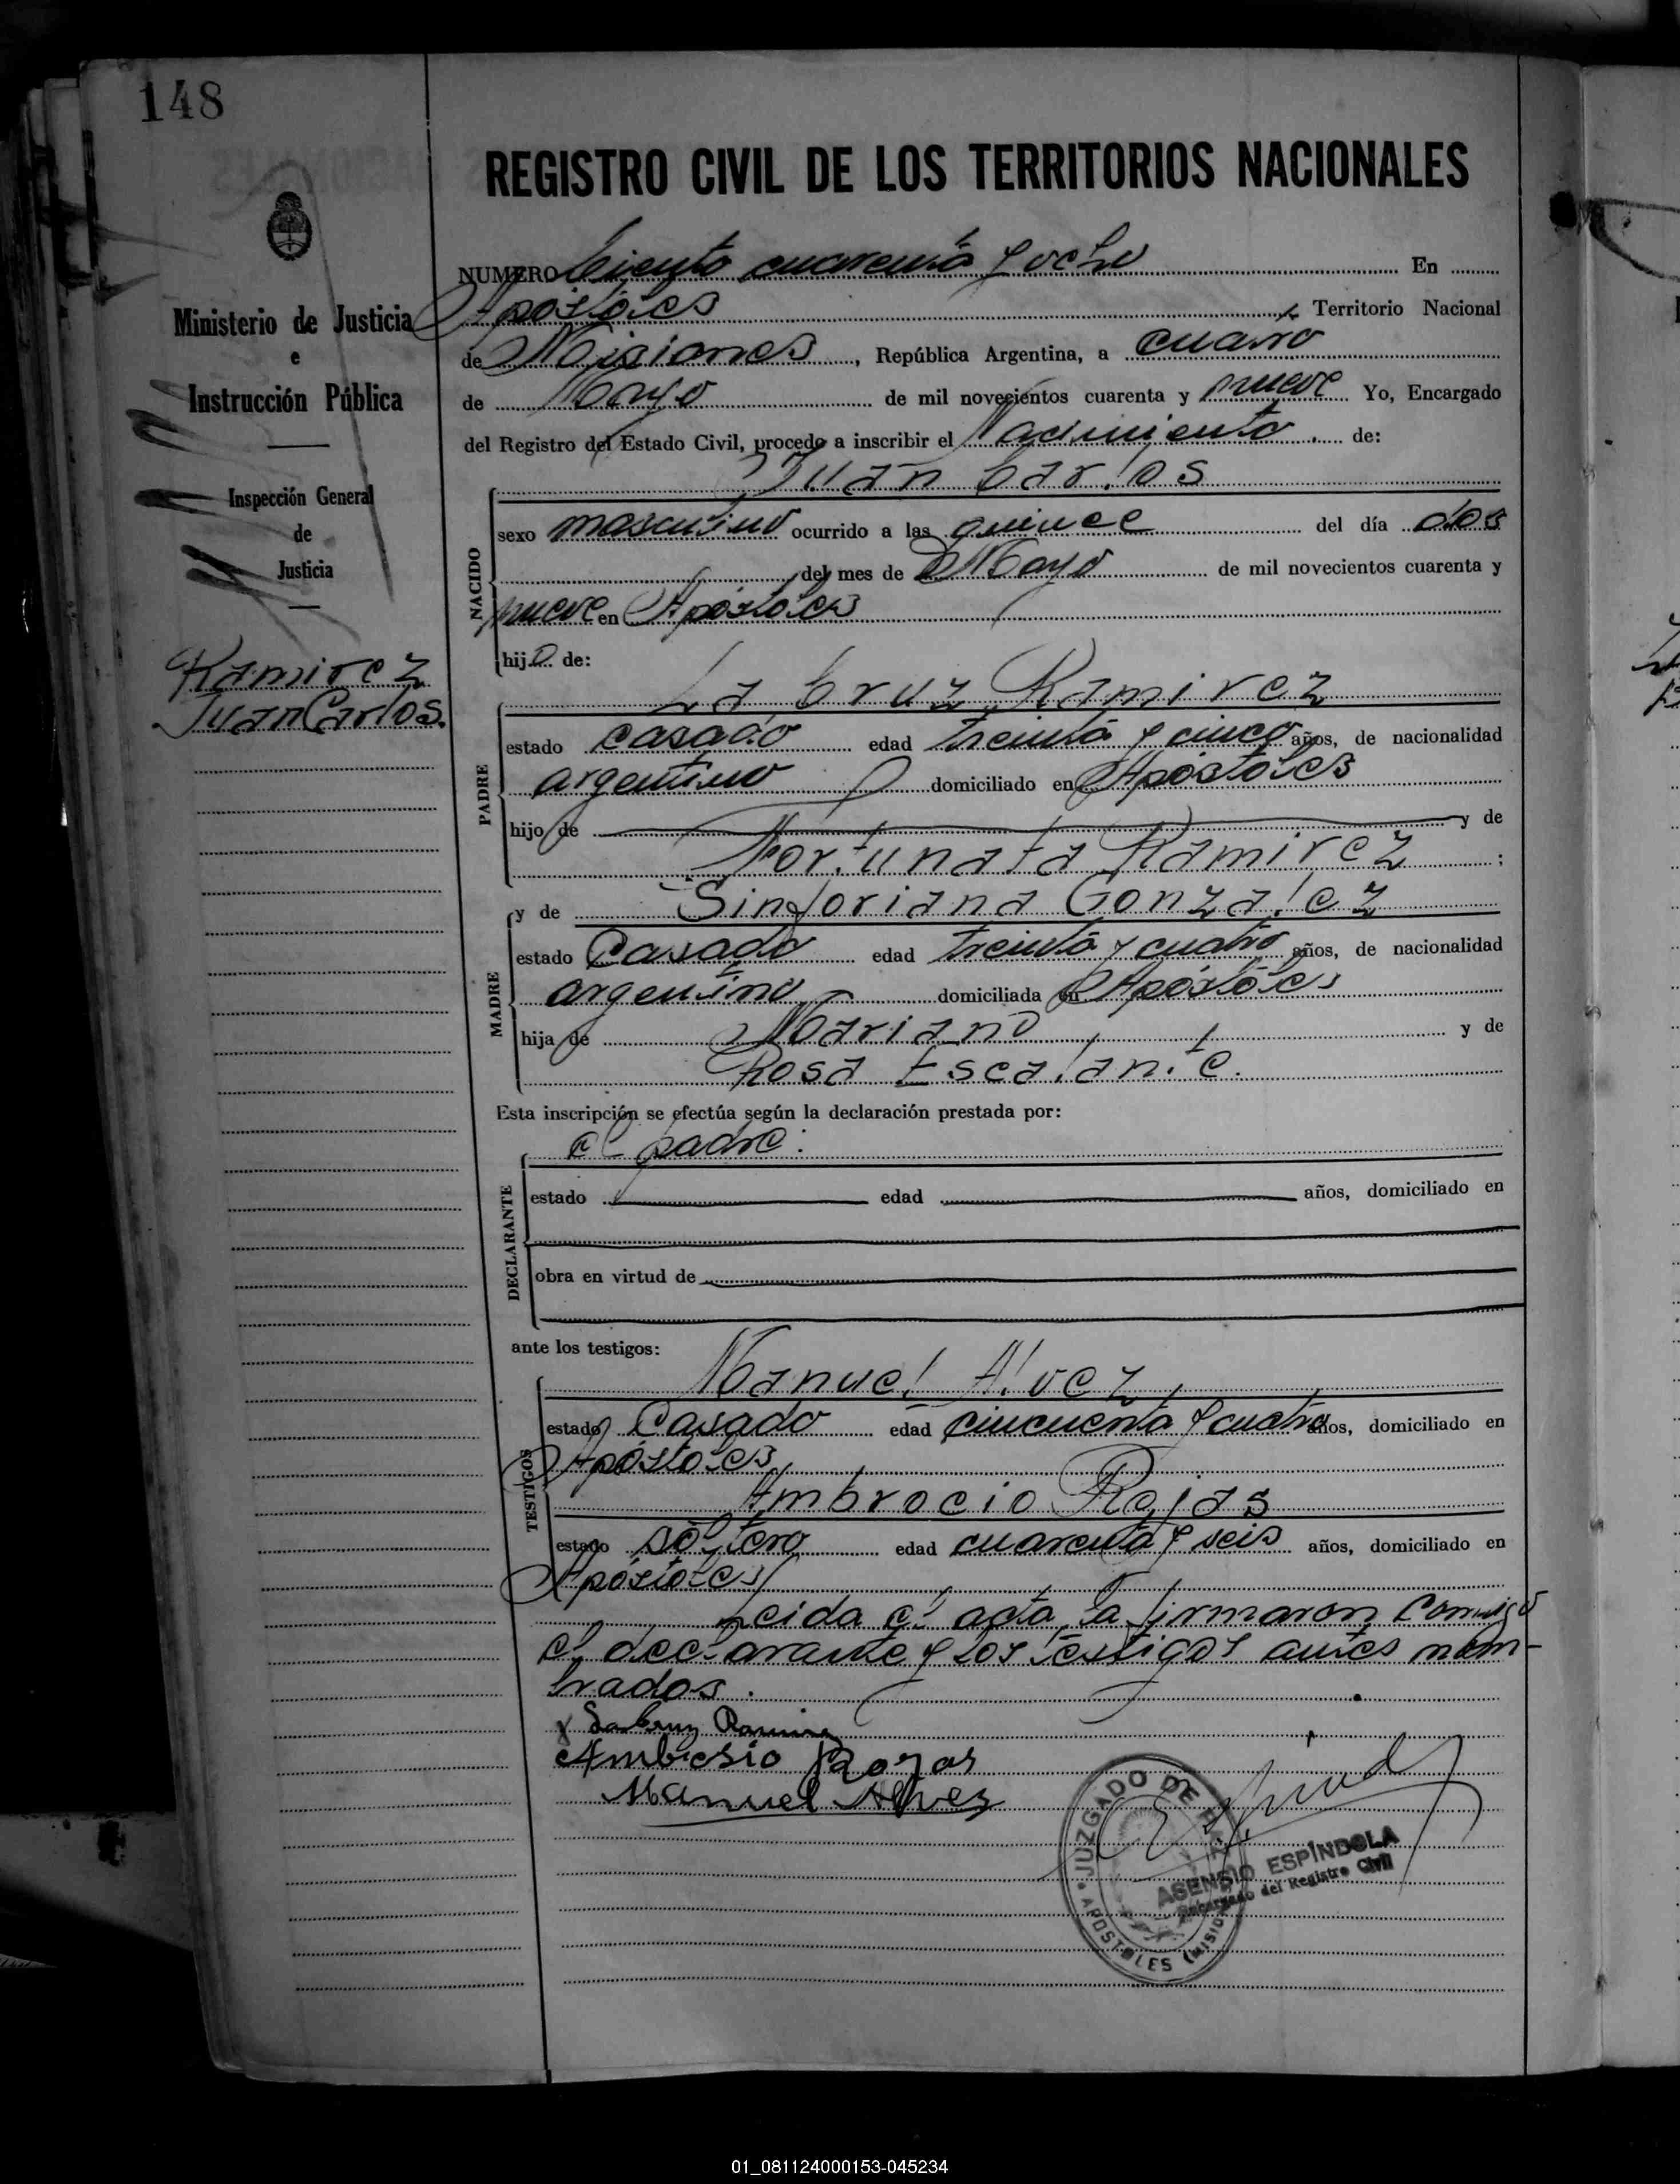 148
REGISTRO CIVIL DE LOS TERRITORIOS NACIONALES
NUMERO Ciento cuarenta y ocho En
Apóstoles Territorio Nacional
de Misiones, República Argentina, a cuatro
de Mayo de mil novecientos cuarenta y nueve Yo, Encargado
del Registro del Estado Civil, procedo a inscribir el Nacimiento de:
Juan Carlos
NACIDO
sexo masculino ocurrido a las quince del día dos
del mes de Mayo de mil novecientos cuarenta y
nueve en Apóstoles
hijo de:
La Cruz Ramirez
PADRE
estado casado edad treinta y cinco años, de nacionalidad
argentino domiciliado en Apóstoles
hijo de y de
Fortunata Ramirez;
y de Sinforiana Gonzalez
MADRE
estado Casada edad treinta y cuatro años, de nacionalidad
argentina domiciliada en Apóstoles
hija de Mariano y de
Rosa Escalante.
Esta inscripción se efectúa según la declaración prestada por:
el padre:
DECLARANTE
estado edad años, domiciliado en
obra en virtud de
ante los testigos:
Manuel Alvez
TESTIGOS
estado Casado edad cincuenta y cuatro años, domiciliado en
Apóstoles
Ambrocio Rojas
estado soltero edad cuarenta y seis años, domiciliado en
Apóstoles
Leida el acta, la firmaron conmigo
el declarante y los testigos antes nom-
brados.
La Cruz Ramirez
Ambrosio Rojas
Manuel Alvez
JUZGADO DE PAZ
APOSTOLES (MISIONES)
ASENSIO ESPÍNDOLA
Encargado del Registro Civil
Ministerio de Justicia
e
Instrucción Pública
Inspección General
de
Justicia
Ramirez
Juan Carlos.
01_081124000153-045234